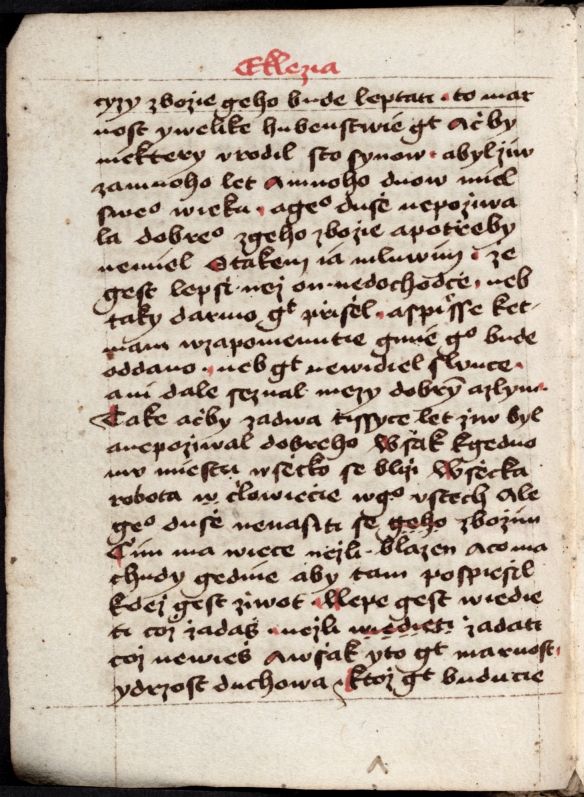 Eklezia
cyzy zbozie geho bude leptati · to mar
nost y welike hubenstwie gt Ač by
niektery urodil sto synow · a byl ziw
za mnoho let A mnoho dnow miel
sweo wieku · a geo duśe nepoziwa
la dobreo z geho zbozie a potřeby
nemiel O takem ia mluwim · ze
gest lepśi nez on nedochodće · neb
taky darmo gt přiśel · a spiśse ket
mam w zapomenutie gmie go bude
oddano · neb gt newidiel slunce ·
ani dale seznal mezy dobrym a zlym ·
Take ač by za dwa tissyce let ziw byl
a nepoziwal dobreho Wśak k gedno
mu miestu wśećko se blizi Wśećka
robota w ćlowiećie w go ustech Ale
geo duśe nenasiti se geho zbozim
Tim ma wiece nezli blazen A co ma
chudy gedine aby tam pospieśil
kdez gest ziwot · Lepe gest wiedie
ti coz zadaś · nezli wiedieti zadati
coz newieś A wśak y to gt marnost ·
y drzost duchowa · ktoz gt buducie